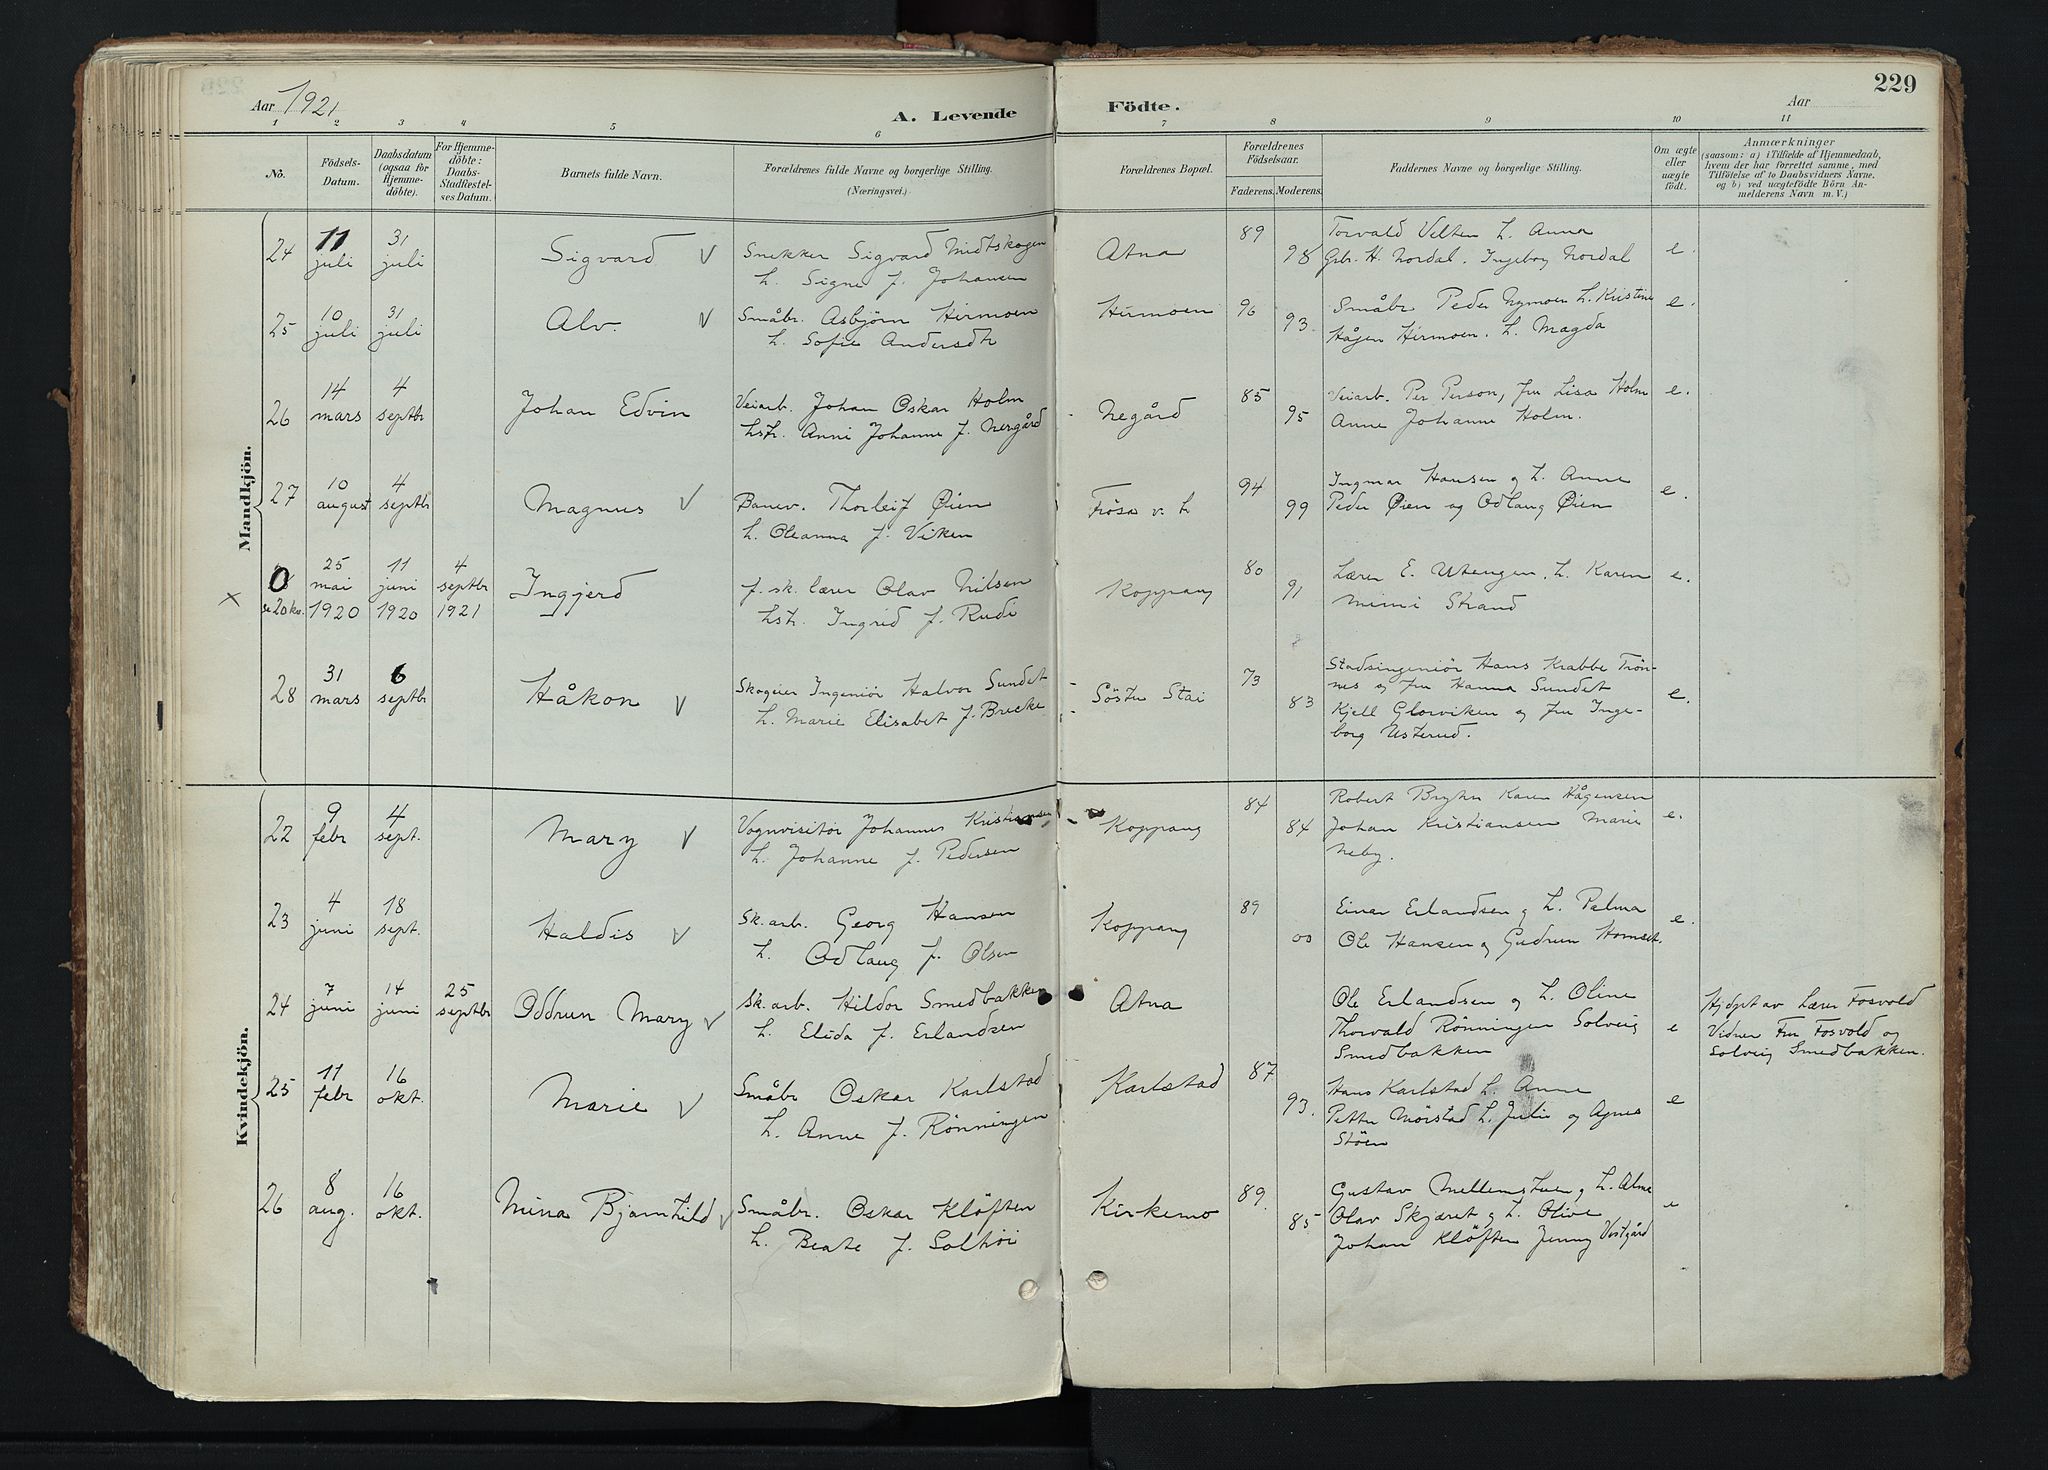 229
Aar 1921
A. Levende
Födte.
Aar
1 2 3 4 5 6 7 8 9 10 11
No.
Födsels-
Datum.
Daabsdatum
(ogsaa for
Hjemme-
döbte).
For Hjemme-
döbte:
Daabs-
Stadfæstel-
ses Datum.
Barnets fulde Navn.
Forældrenes fulde Navne og borgerlige Stilling.
(Næringsvei.)
Forældrenes Bopæl.
Forældrenes
Födselsaar.
Faderens. Moderens.
Faddernes Navne og borgerlige Stilling.
Om ægte
eller
uægte
födt.
Anmærkninger
(saasom: a) i Tilfælde af Hjemmedaab,
hvem der har forrettet samme, med
Tilföielse af to Daabsvidners Navne,
og b) ved uægtefödte Börn An-
melderens Navn m. V.)
Mandkjön.
24 11 juli 31 juli Sigvard V
Snekker Sigvard Midtskogen
h. Signe f. Johansen
Atna 89 98
Torvald Velten h. Anna
Grbr. H. Nordal. Ingeborg Nordal
e.
25 10 juli 31 juli Alv. V
Småbr. Asbjørn Hirmoen
h. Sofie Andersdtr
Hirmoen 96 93
Småbr Peder Nymoen h. Kristine
Hågen Hirmoen. h. Magda
e.
26 14 mars 4 septbr Johan Edvin
Veiarb. Johan Oskar Holm
hstr. Anni Johanne f. Nergård
Negård 85 95
Veiarb. Per Person, fru Lisa Holm
Anne Johanne Holm.
e.
27 10 august 4 septbr Magnus V
Banev. Thorleif Øien
h. Oleanna f. Viken
94 99
Ingmar Hansen og h. Anne
Peder Øien og Odlaug Øien
e.
x 0
25 mai 1920
11 juni 1920
4 septbr 1921
Ingjerd
f. sk. lærer Olav Nilsen
hstr. Ingrid f. Rudi
Koppang 80 91
Lærer E. Utengen. h. Karen
Mimi Strand
e.
28 31 mars 6 septbr Håkon V
Skogeier Ingeniør Halvor Sundet
h. Marie Elisabet f. Brecke
Söstu Stai 73 83
Stadsingeniør Hans Krabbe Trön-
nes og fru Hanna Sundet
Kjell Glorviken og fru Inge-
borg Usterud.
e.
Kvindekjön.
22 9 febr 4 sept. Mary V
Vognvisitör Johannes Kristiansen
h. Johanne f. Pedersen
Koppang 84 84
Robert Bryhn Karen Hågensen
Johan Kristiansen Marie
Neby.
e.
23 4 juni 18 sept. Haldis V
Sk.arb. Georg Hansen
h. Odlaug f. Olsen
Koppang 89 00
Einar Erlandsen og h. Palma
Ole Hansen og Gudrun Homset.
e.
24 7 juni 14 juni 25 septbr Oddrun Mary V
Sk.arb. Hildor Smedbakken
h. Elida f. Erlandsen
Atna
Ole Erlandsen og h. Oline
Thorvald Rönningen Solveig
Smedbakken
e
Hjdpt av Lærer Fosvold
Vidner Fru Fosvold og
Solveig Smedbakken.
25 11 febr 16 okt. Marie V
Småbr Oskar Karlstad
h. Anne f. Rönningen
Karlstad 87 93.
Hans Karlstad h. Anne
Petter Mörstad h. Julie og Agnes
Stöen
e
26 8 aug. 16 okt. Mina Bjarnhild V
Småbr. Oskar Klöften
h. Beate f. Solhöi
Kirkemo 89. 85
Gustav Mellemstuen, h. Alma
Olav Skjæret og h. Olive
Johan Klöften Jenny Vestgård
e